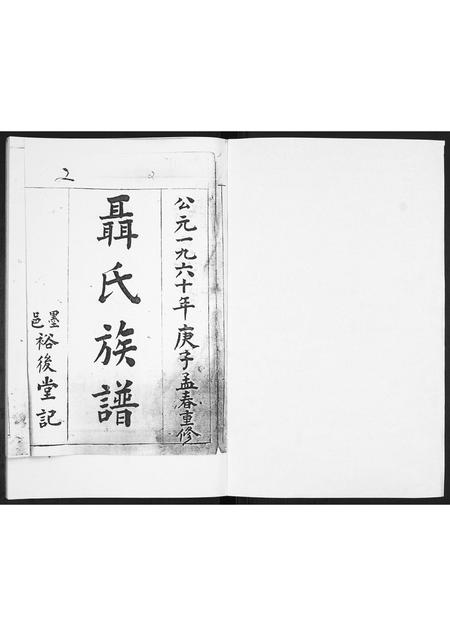 公元一九六十年庚子孟春重修
聶氏族譜
墨邑裕後堂記